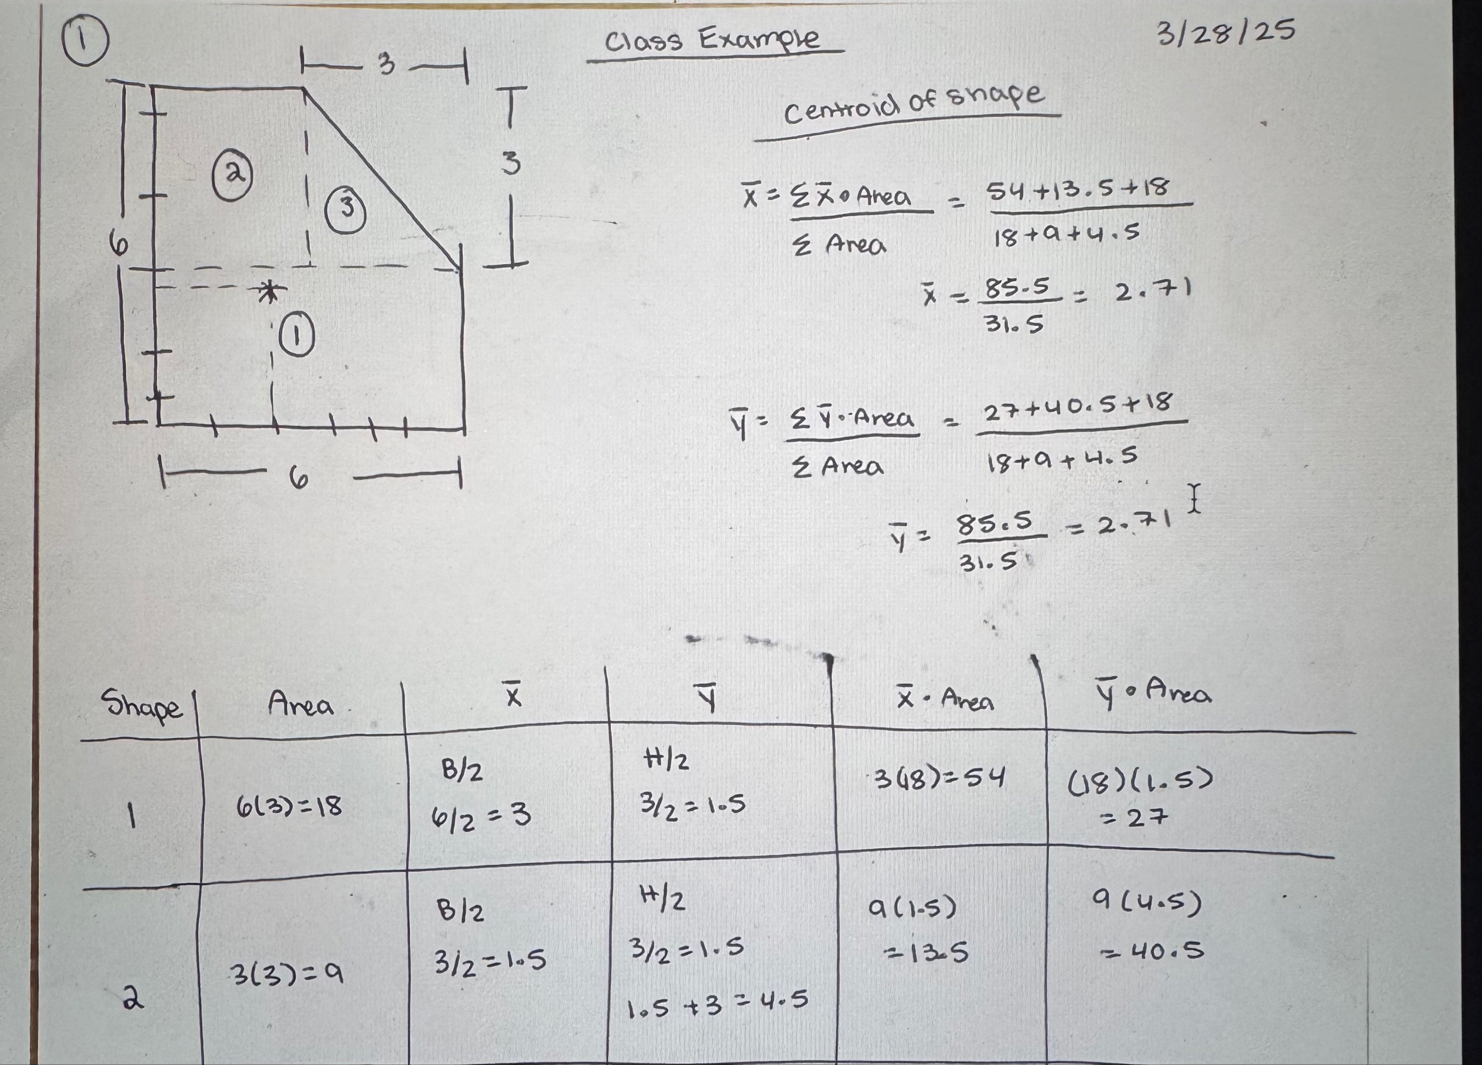 ①
Class Example
3/28/25
3
6
3
②
③
①
6
Centroid of shape
x̄ = Σx̄•Area / Σ Area = 54+13.5+18 / 18+9+4.5
x̄ = 85.5 / 31.5 = 2.71
ȳ = Σȳ•Area / Σ Area = 27+40.5+18 / 18+9+4.5
ȳ = 85.5 / 31.5 = 2.71
Shape Area x̄ ȳ x̄ • Area ȳ • Area
1
6(3)=18
B/2
6/2 = 3
H/2
3/2 = 1.5
3(18)=54
(18)(1.5)
= 27
2
3(3)=9
B/2
3/2=1.5
H/2
3/2=1.5
1.5 +3 = 4.5
9(1.5)
=13.5
9(4.5)
= 40.5